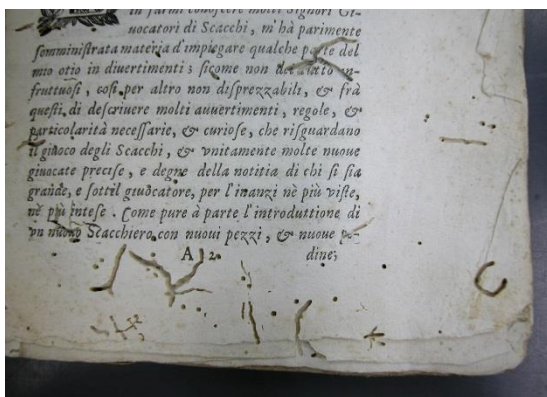 in farmi conoscere molti Signori Gi-
uocatori di Scacchi, m'hà parimente
ſomminiſtrata materia d'impiegare qualche parte del
mio otio in divertimenti; ſicome non del tutto in-
fruttuoſi, coſi per altro non diſprezzabili, & frà
queſti, di deſcriuere molti auuertimenti, regole, &
particolarità neceſſarie, & curioſe, che riſguardano
il giuoco degli Scacchi, & vnitamente molte nuoue
giuocate preciſe, e degne della notitia di chi ſi ſia
grande, e ſottil giuocatore, per l'inanzi nè più viſte,
nè più inteſe. Come pure à parte l'introduttione di
vn nuouo Scacchiero con nuoui pezzi, & nuoue pe-
A 2 dine;